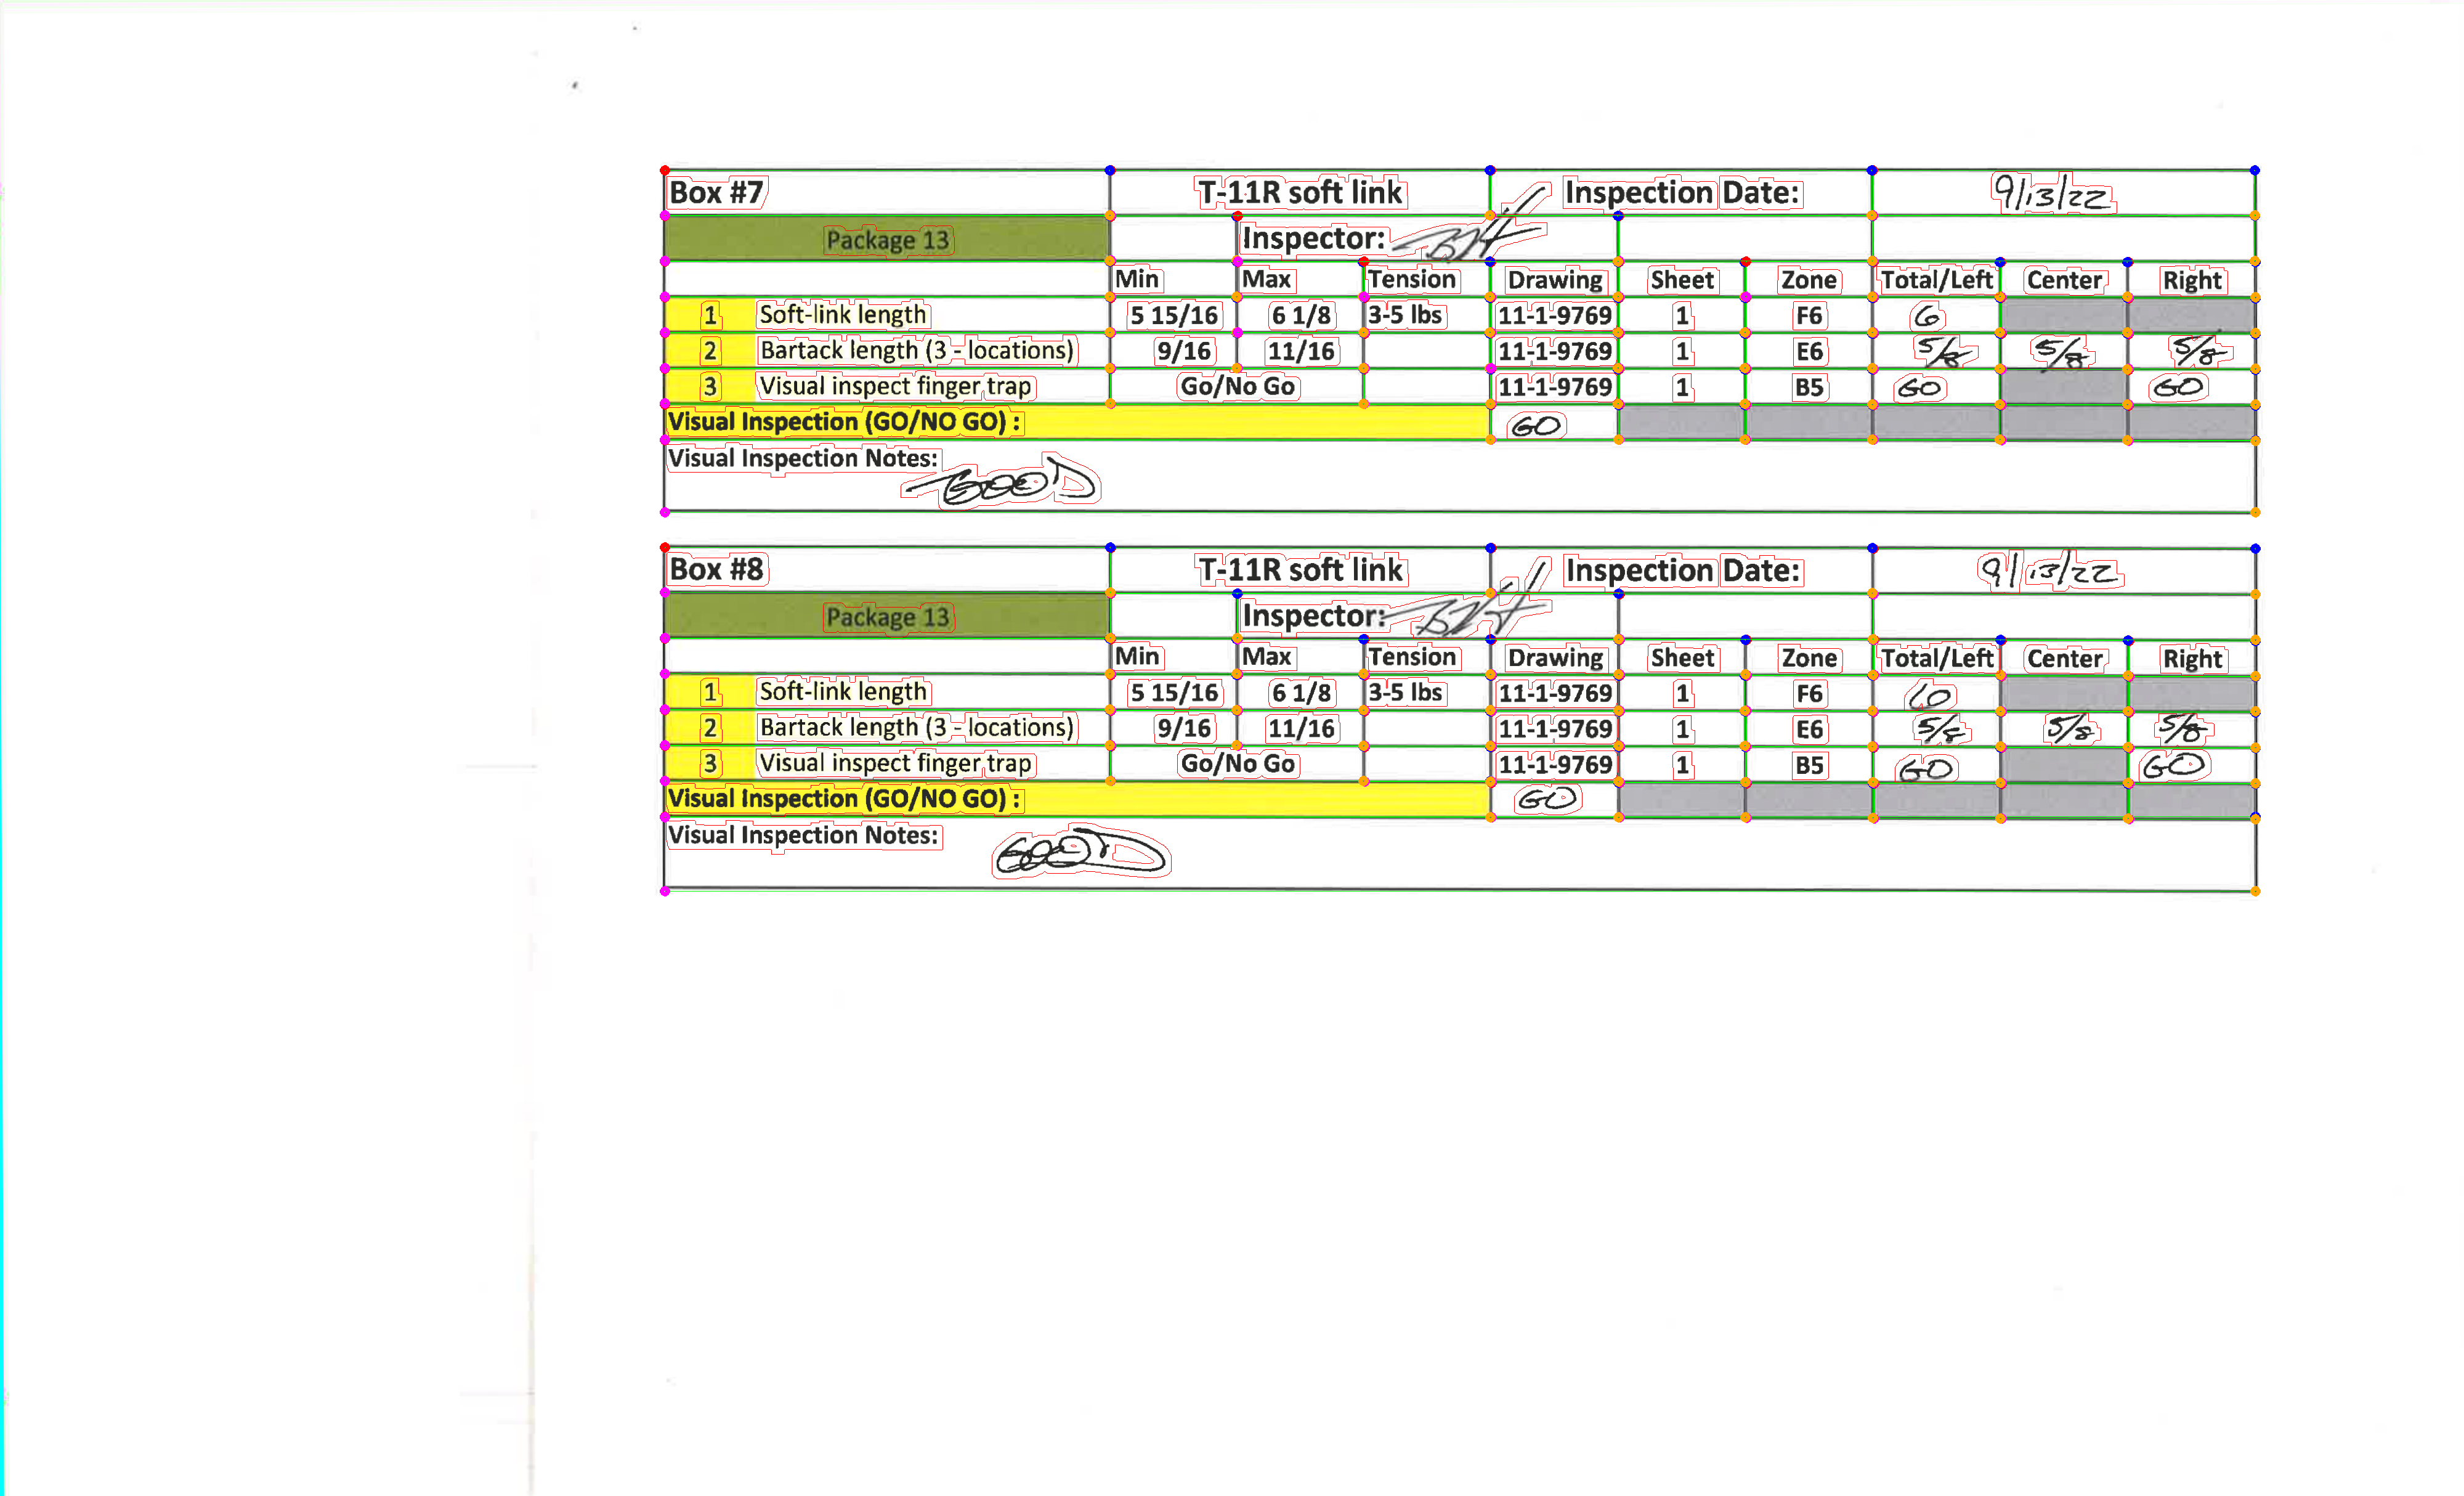 Box #7 T-11R soft link Inspection Date: 9/13/22
Package 13 Inspector:
Min Max Tension Drawing Sheet Zone Total/Left Center Right
1 Soft-link length 5 15/16 6 1/8 3-5 lbs 11-1-9769 1 F6 6
2 Bartack length (3 - locations) 9/16 11/16 11-1-9769 1 E6 5/8 5/8 5/8
3 Visual inspect finger trap Go/No Go 11-1-9769 1 B5 GO GO
Visual Inspection (GO/NO GO) : GO
Visual Inspection Notes: GOOD
Box #8 T-11R soft link Inspection Date: 9/13/22
Package 13 Inspector:
Min Max Tension Drawing Sheet Zone Total/Left Center Right
1 Soft-link length 5 15/16 6 1/8 3-5 lbs 11-1-9769 1 F6 6
2 Bartack length (3 - locations) 9/16 11/16 11-1-9769 1 E6 5/8 5/8 5/8
3 Visual inspect finger trap Go/No Go 11-1-9769 1 B5 GO GO
Visual Inspection (GO/NO GO) : GO
Visual Inspection Notes: GOOD